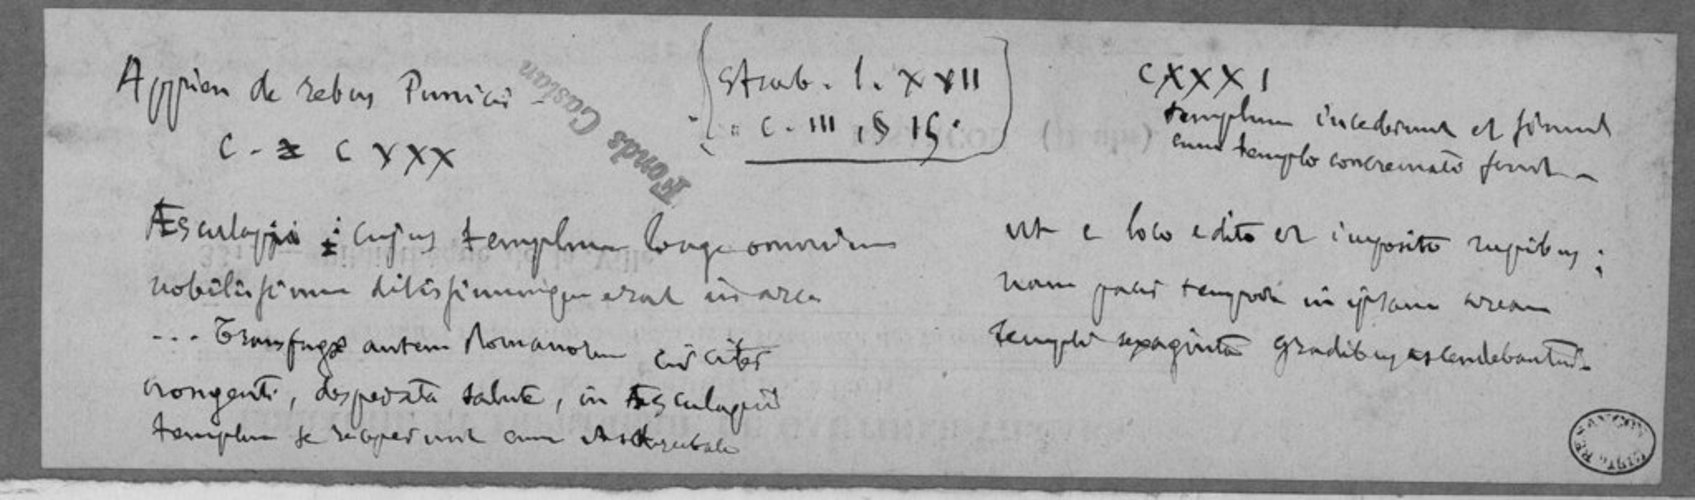 Appien de rebus Punicis -
C - CXXX
Strab. l. XVII
c. III, § 15.
Fonds Castan
Æsculapii cujus templum longe omnium
nobilissimum ditissimumque erat in arce
... Transfugæ autem Romanorum circiter
nongenti, desperata salute, in Æsculapii
templum se receperunt cum Asdrubale
CXXXI
templum incederunt et simul
cum templo concremati sunt -
ut e loco edito et imposito rupibus ;
nam pacis tempore in ipsam aream
templi sexaginta gradibus ascendebantur.